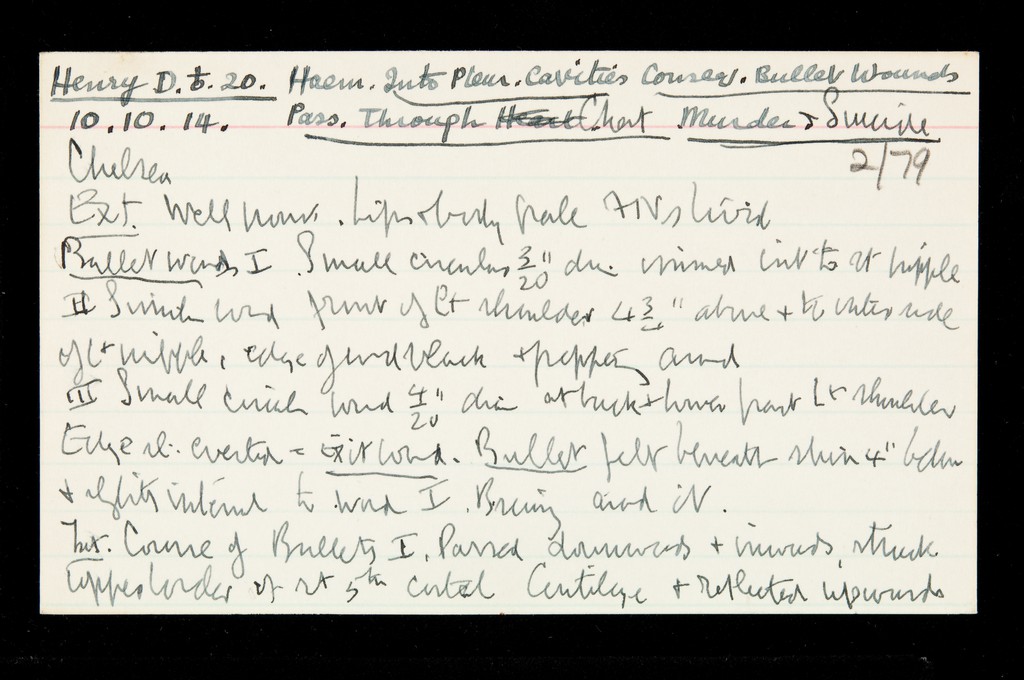 Henry D. t. 20. Haem. Into Pleur. Cavities Conseq. Bullet Wounds
10.10.14. Pass. Through Heart Chest Murder & Suicide
2/79
Chelsea
Ext. Well nour. Lips & body pale livid
Bullet wounds I Small circular 3/20" dia. to rt nipple
II Similar wd front of Lt shoulder 4 3/4" above & to outer side
of Lt nipple, edge of wd black & peppery around
III Small circular wound 4/20" dia at back & lower part Lt shoulder
Edge sl. everted = Exit wound. Bullet felt beneath skin 4" below
& slightly internal to wound I. Bruising around it.
Int. Course of Bullets I. Passed downwards & inwards struck
upper border of rt 5th costal Cartilage & reflected upwards